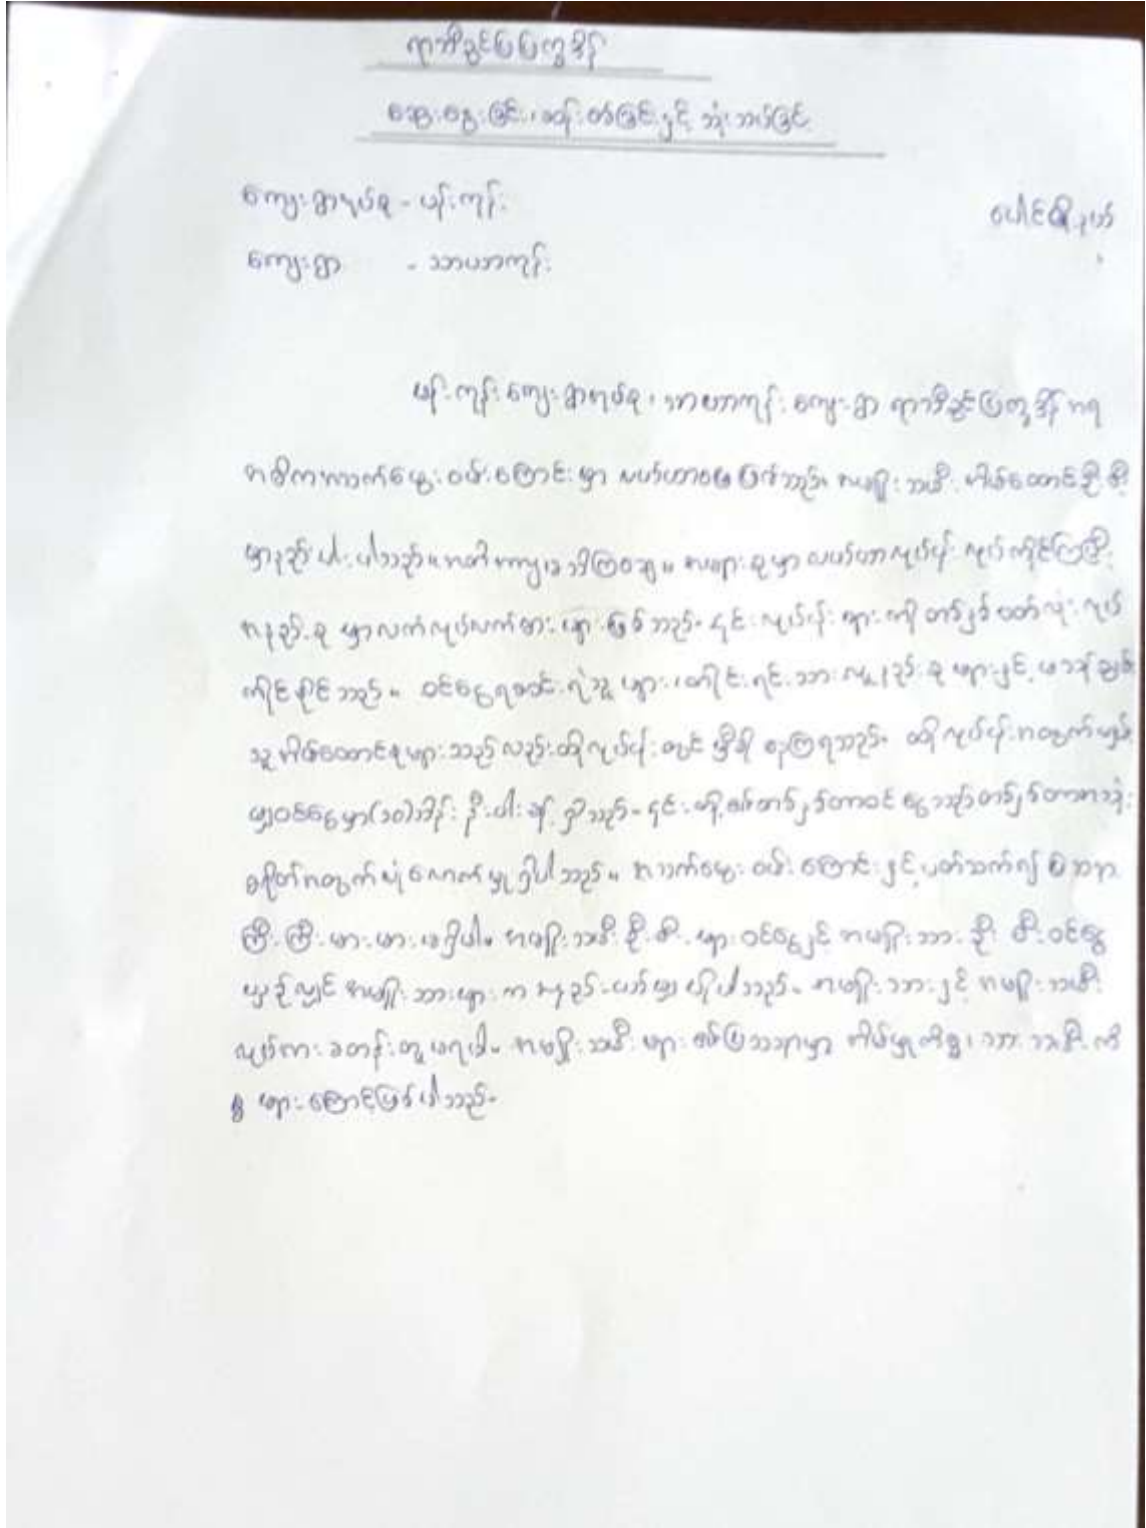 ရာသီခွင်ပြပြက္ခဒိန်
ဆွေးနွေးခြင်း၊ ဆန်းစစ်ခြင်းနှင့် သုံးသပ်ခြင်း
ကျေးရွာအုပ်စု - ပန်းကုန်း
ကျေးရွာ - သာယာကုန်း
ပေါင်မြို့နယ်
ပန်းကုန်းကျေးရွာအုပ်စု၊ သာယာကုန်း ကျေးရွာ ရာသီခွင်ပြက္ခဒိန် အရ
အဓိကအသက်မွေးဝမ်းကြောင်းမှာ လယ်ယာ ဖြစ်သည်။ အမျိုးသမီး အိမ်ထောင်ဦးစီး
များနည်းပါးပါသည်။ အများစုမှာ လယ်ယာလုပ်ငန်း လုပ်ကိုင်ကြပြီး
အနည်းစုမှာလက်လုပ်လက်စားများဖြစ်သည်။ ၎င်းလုပ်ငန်းများကို တစ်နှစ်ပတ်လုံး လုပ်
ကိုင်နိုင်သည်။ ဝင်ငွေရှာဖွေ သူများ၊ တိုင်းရင်းသားလူနည်းစုများနှင့် မသန်စွမ်း
သူအိမ်ထောင်စုများသည်လည်းထိုလုပ်ငန်းတွင် မှီခို နေကြရသည်။ ထိုလုပ်ငန်းအတွက်ပျမ်း
မျှဝင်ငွေမှာ(၁၀)သိန်း ခန့် ရှိသည်။ ၎င်းတို့၏တစ်နှစ်တာဝင်ငွေသည်တစ်နှစ်တာအသုံး
စရိတ်အတွက်လုံလောက်မှုရှိပါသည်။ အသက်မွေးဝမ်းကြောင်းနှင့်ပတ်သက်၍ ပြဿနာ
ကြီးကြီးမားမားမရှိပါ။ အမျိုးသမီးဦးစီးများဝင်ငွေနှင့် အမျိုးသားဦးစီးဝင်ငွေ
ယှဉ်လျှင် အမျိုးသားများက အနည်းငယ်မျှ ပိုပါသည်။ အမျိုးသားနှင့် အမျိုးသမီး
လုပ်အားခတန်းတူမရပါ။ အမျိုးသမီးများ၏ပြဿနာမှာ အိမ်မှုကိစ္စ၊ သားသမီးကိ
စ္စများကြောင့်ဖြစ်ပါသည်။